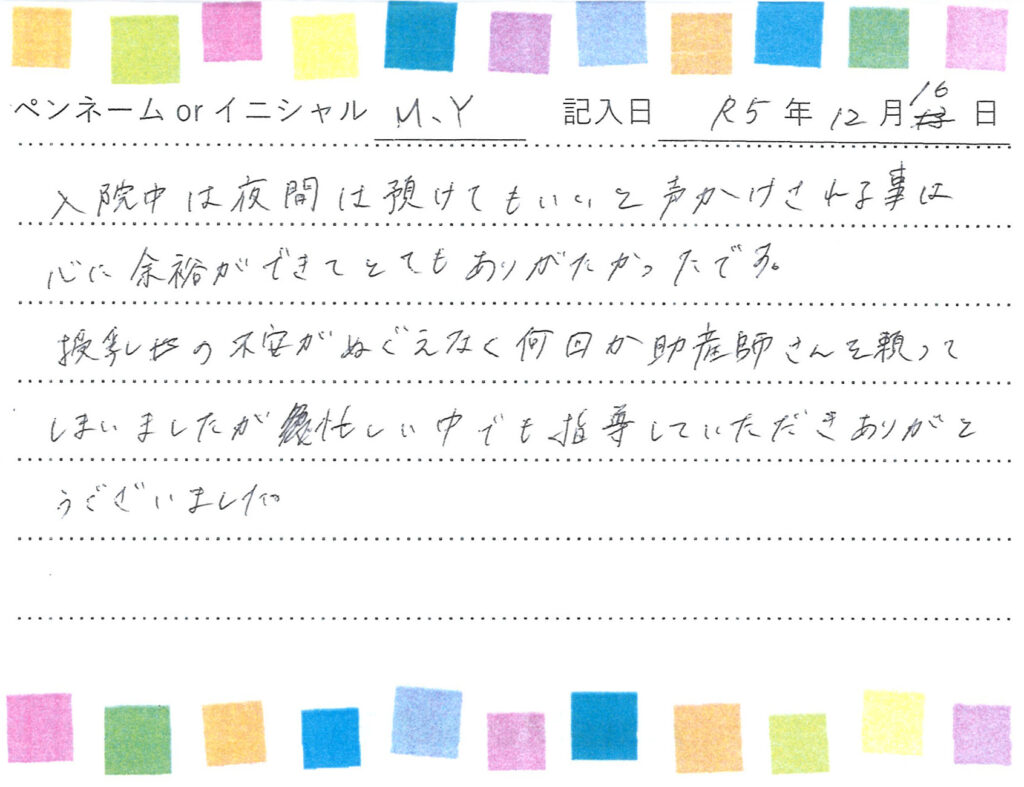 ペンネーム or イニシャル M、Y 記入日 R5年12月16日
入院中は夜間は預けてもいいと声かけされる事は
心に余裕ができてとてもありがたかったです。
授乳時の不安がぬぐえなく何回か助産師さんを頼って
しまいましたが忙しい中でも指導していただきありがと
うございました。